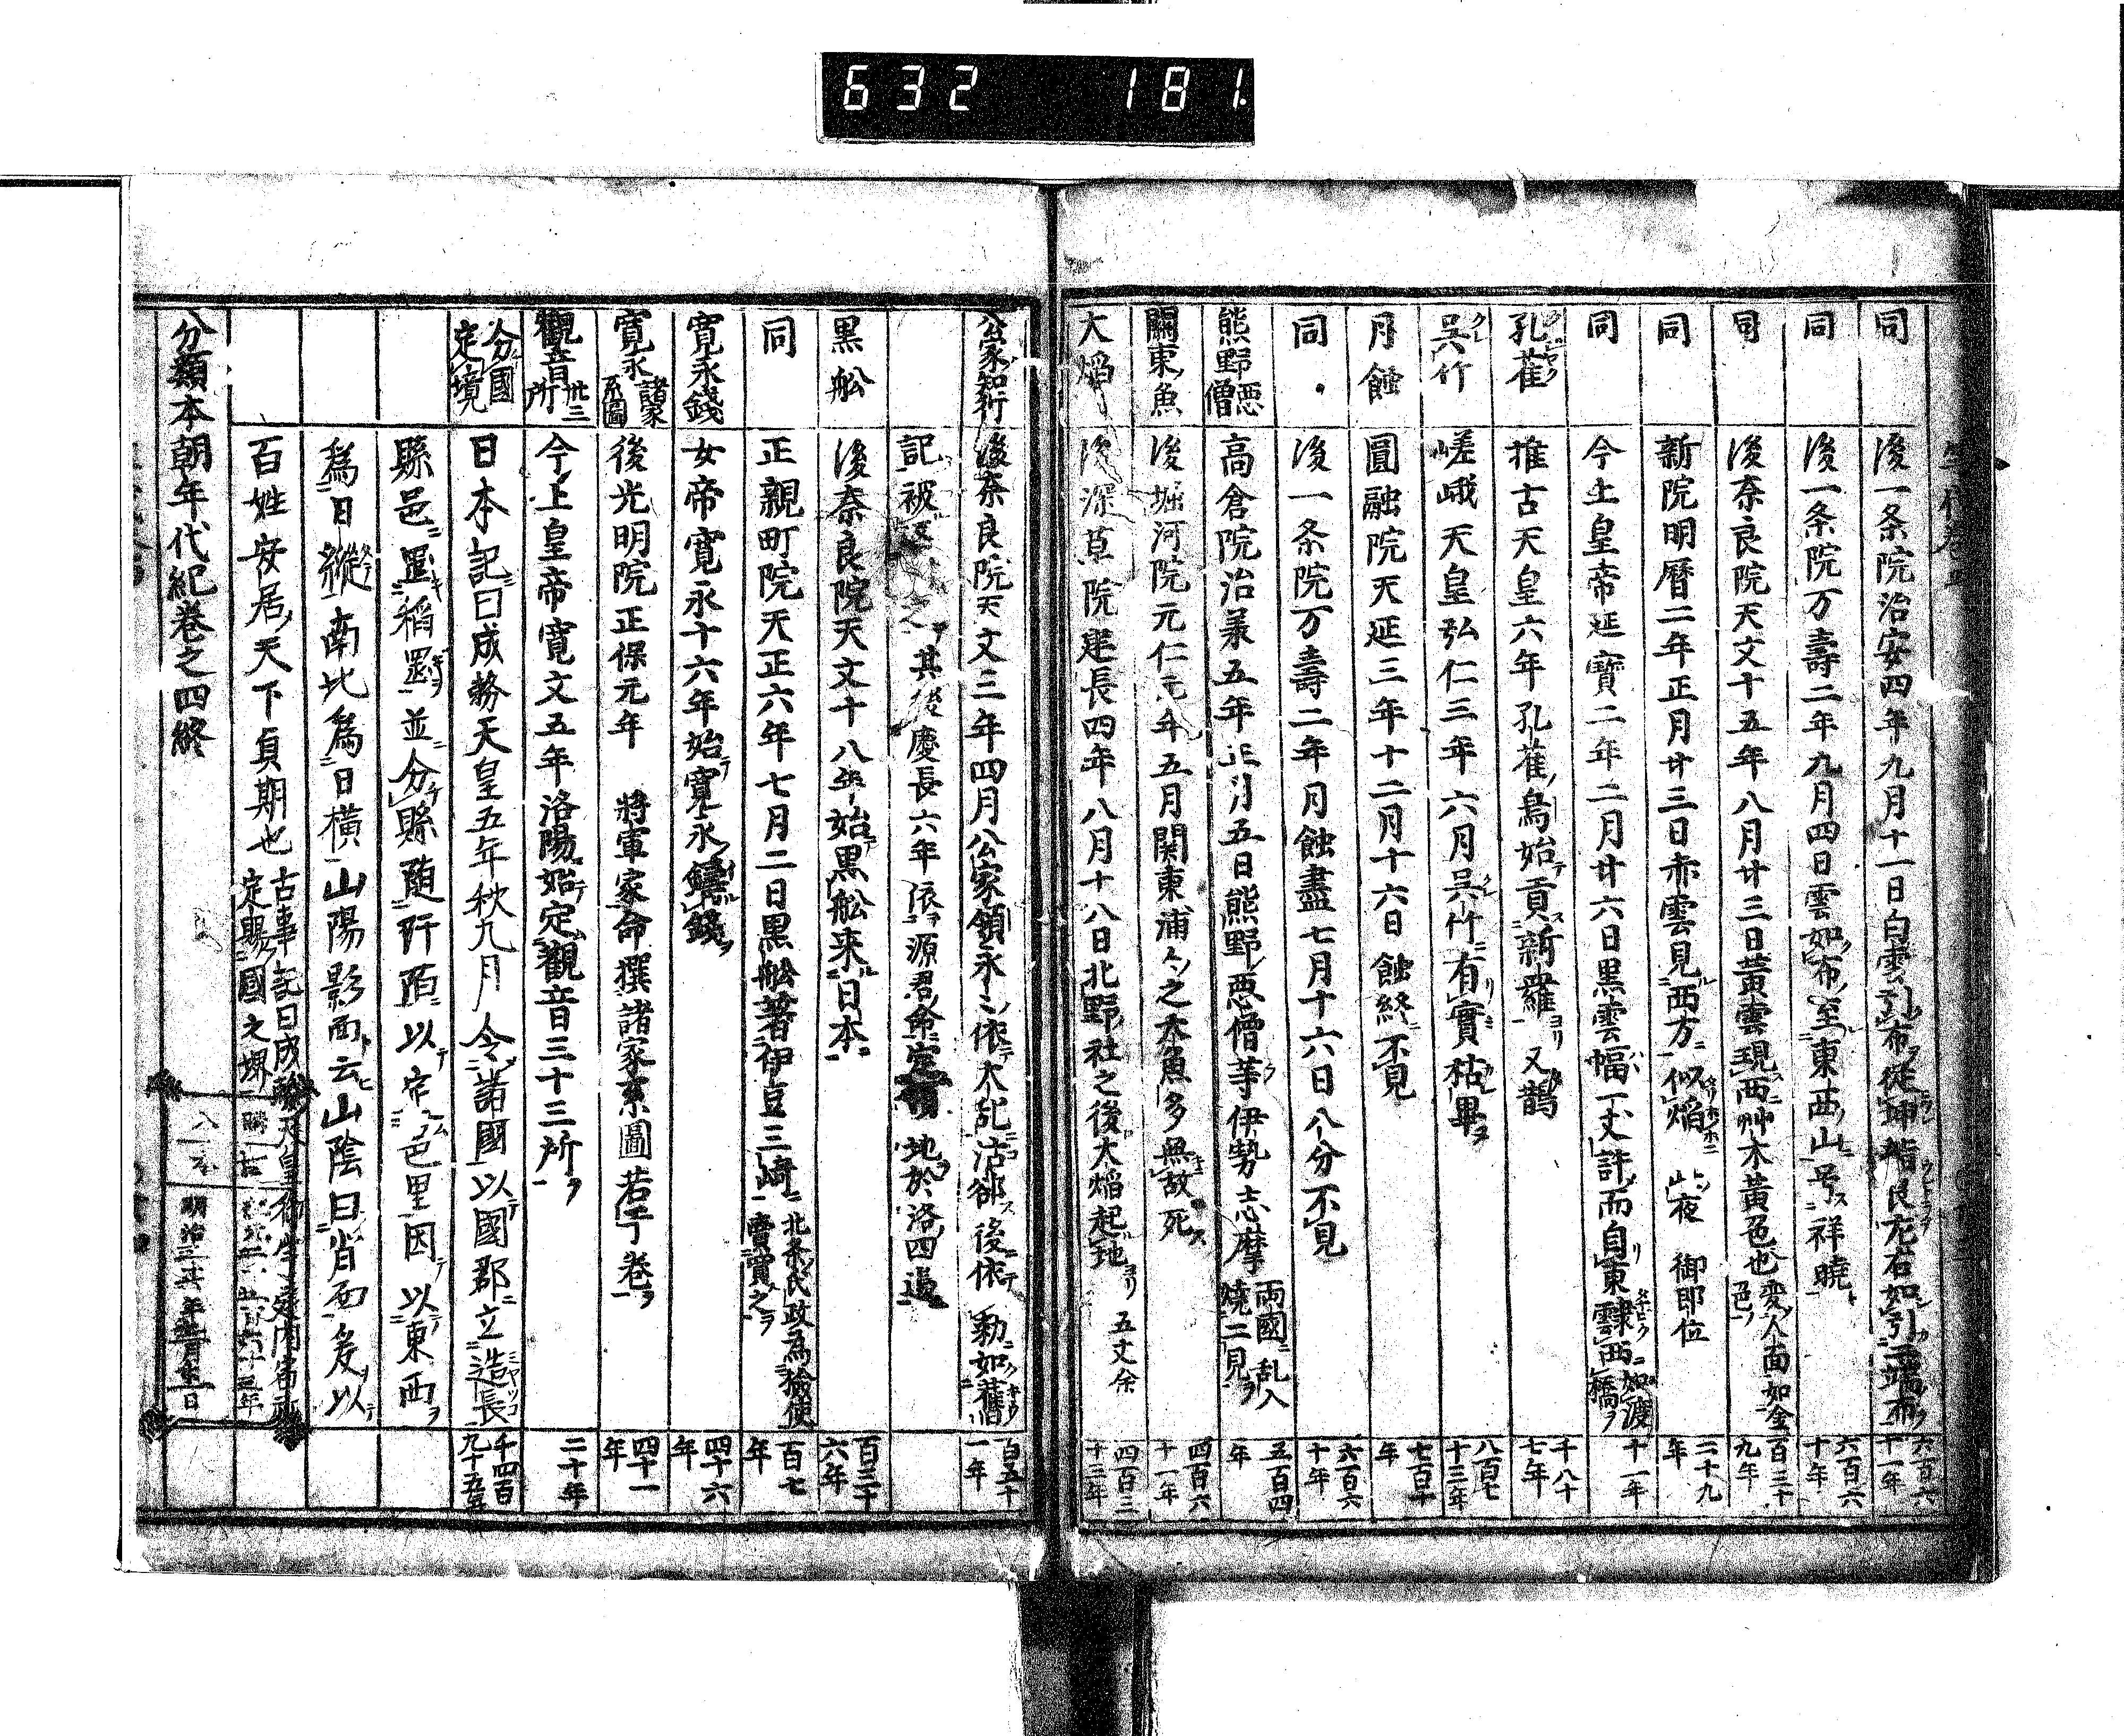 632 181.
同 後一条院治安四年九月十一日白雲引布從坤指艮左右如引二端布 六百六十一年
同 後一条院万壽二年九月四日雲如布至東西山号ス祥暁ト 六百六十年
同 後奈良院天文十五年八月廿三日黄雲現西艸木黄色也変人面如金色 百三十九年
同 新院明暦二年正月廿三日赤雲見西方似焔 此夜 御即位 二十九年
同 今上皇帝延寶二年二月廿六日黒雲幅一丈許而自東靆西如渡橋 十一年
孔雀 推古天皇六年孔雀鳥始貢新羅ヨリ又鵲 千八十七年
呉竹 嵯峨天皇弘仁三年六月呉竹有實枯畢 八百七十三年
月蝕 圓融院天延三年十二月十六日蝕終不見 七百十年
同 後一条院万壽二年月蝕盡七月十六日八分不見 六百六十年
熊野悪僧 高倉院治承五年正月五日熊野悪僧等伊勢志摩両國乱入焼二見 五百四年
關東魚 後堀河院元仁元年五月関東浦々之大魚多無故死 四百六十一年
大焔 後深草院建長四年八月十八日北野社之後大焔起地ヨリ五丈余 四百三十三年
公家知行 後奈良院天文三年四月公家領永々依大乱沽却後依 勅如舊 百五十一年
記被 之其後慶長六年依源君命定 地於洛四邊
黒舩 後奈良院天文十八年始黒舩來日本 百三十六年
同 正親町院天正六年七月二日黒舩著伊豆三崎北条氏政為檢使賣買之 百七年
寛永錢 女帝寛永十六年始寛永鑄錢 四十六年
寛永諸家系圖 後光明院正保元年 將軍家命撰諸家系圖若干巻 四十一年
觀音卅三所 今上皇帝寛文五年洛陽始定觀音三十三所 二十年
分國定境 日本記曰成務天皇五年秋九月令諸國以國郡立造長 千四百九十五年
縣邑置稲置並分縣随阡陌以定邑里因以東西
為日縦南北為日横山陽影面云山陰曰背面爰以
百姓安居天下貞期也 古事記曰成務天皇 定賜國之堺
分類本朝年代紀巻之四終